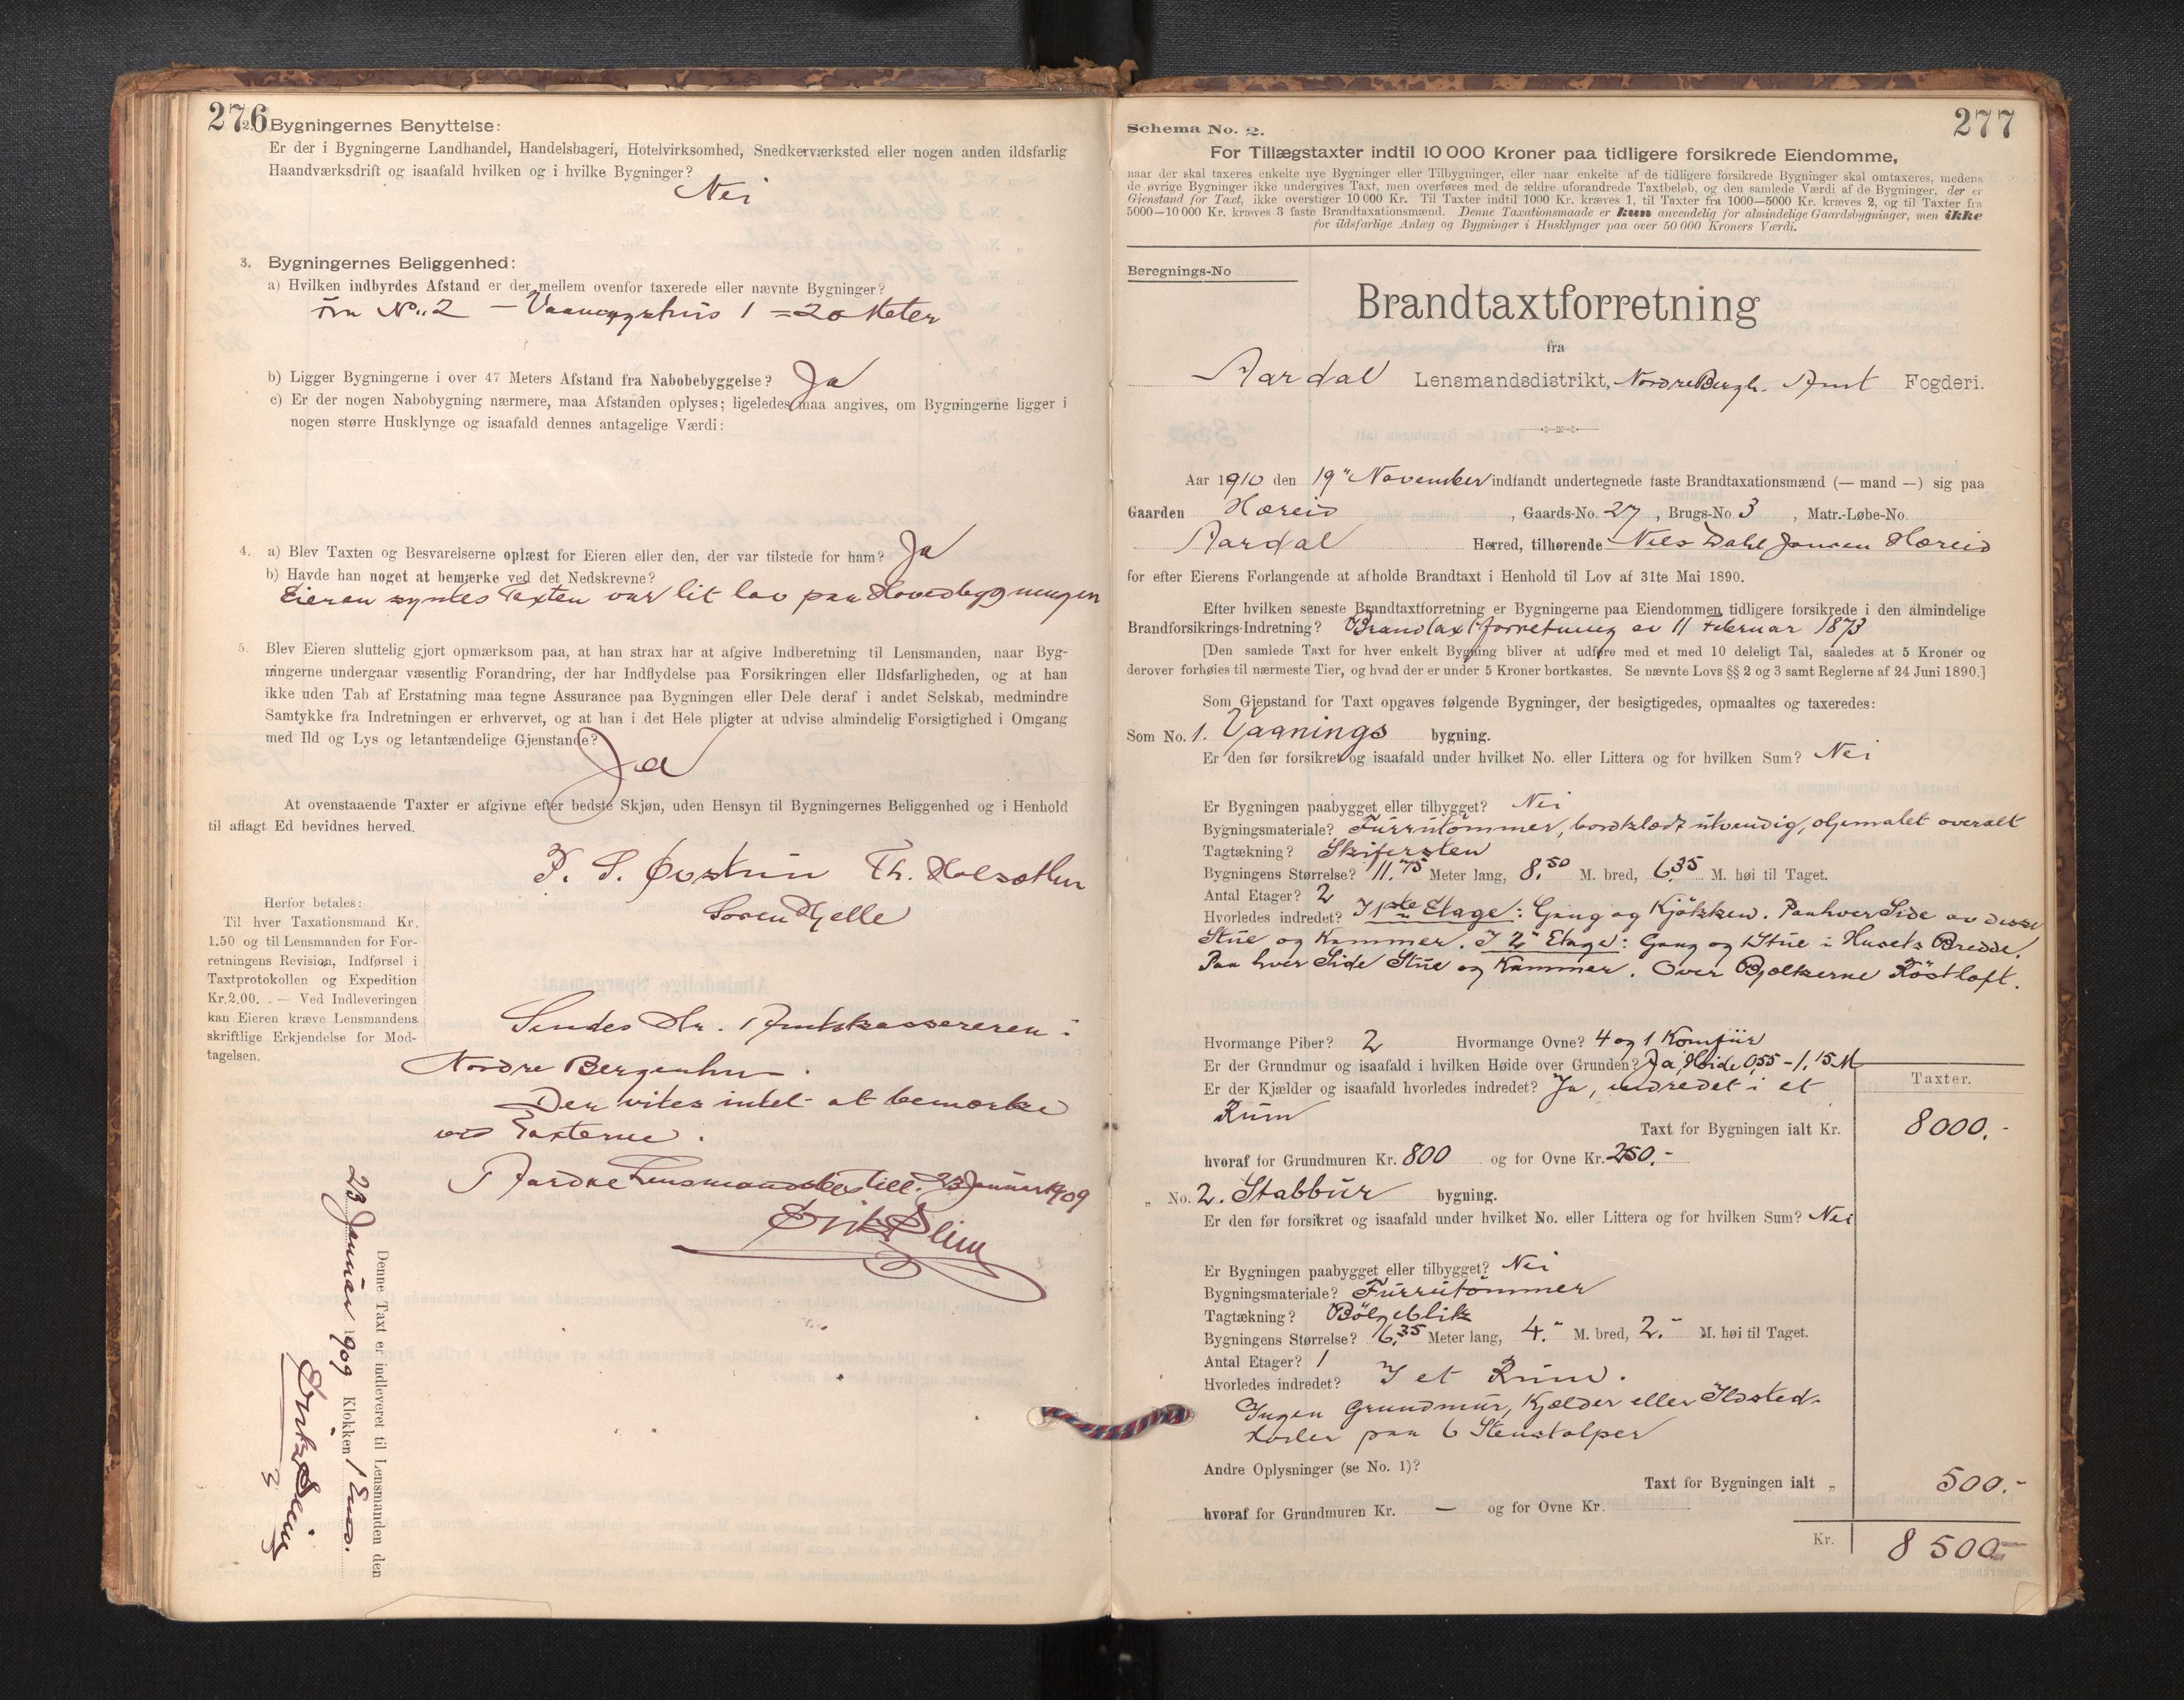 276
2. Bygningernes Benyttelse:
Er der i Bygningerne Landhandel, Handelsbageri, Hotelvirksomhed, Snedkerværksted eller nogen anden ildsfarlig
Haandværksdrift og isaafald hvilken og i hvilke Bygninger?
Nei
3. Bygningernes Beliggenhed:
a) Hvilken indbyrdes Afstand er der mellem ovenfor taxerede eller nævnte Bygninger?
Fra No. 2 – Vaaningshus 1 = 20 Meter
b) Ligger Bygningerne i over 47 Meters Afstand fra Nabobebyggelse? Ja
c) Er der nogen Nabobygning nærmere, maa Afstanden oplyses; ligeledes maa angives, om Bygningerne ligger i
nogen større Husklynge og isaafald dennes antagelige Værdi:
4. a) Blev Taxten og Besvarelserne oplæst for Eieren eller den, der var tilstede for ham? Ja
b) Havde han noget at bemærke ved det Nedskrevne?
Eieren syntes Taxten var lit lav paa Hovedbygningen
5. Blev Eieren sluttelig gjort opmærksom paa, at han strax har at afgive Indberetning til Lensmanden, naar Byg-
ningerne undergaar væsentlig Forandring, der har Indflydelse paa Forsikringen eller Ildsfarligheden, og at han
ikke uden Tab af Erstatning maa tegne Assurance paa Bygningen eller Dele deraf i andet Selskab, medmindre
Samtykke fra Indretningen er erhvervet, og at han i det Hele pligter at udvise almindelig Forsigtighed i Omgang
med Ild og Lys og letantændelige Gjenstande?
Ja
At ovenstaaende Taxter er afgivne efter bedste Skjøn, uden Hensyn til Bygningernes Beliggenhed og i Henhold
til aflagt Ed bevidnes herved.
S. Th. Holsæther
Søren Hjelle
Herfor betales:
Til hver Taxationsmand Kr.
1.50 og til Lensmanden for For-
retningens Revision, Indførsel i
Taxtprotokollen og Expedition
Kr. 2.00. . — Ved Indleveringen
kan Eieren kræve Lensmandens
skriftlige Erkjendelse for Mod-
tagelsen.
Sendes Hr. Amtskassereren i
Nordre Bergenhus.
Der vites intet at bemærke
ved Taxterne.
Aardal Lensmandsbestill. 23 Januar 1909
Denne Taxt er indleveret til Lensmanden den
23 Januar 1909 Klokken 1 Em.
277
Schema No. 2.
For Tillægstaxter indtil 10 000 Kroner paa tidligere forsikrede Eiendomme,
naar der skal taxeres enkelte nye Bygninger eller Tilbygninger, eller naar enkelte af de tidligere forsikrede Bygninger skal omtaxeres, medens
de øvrige Bygninger ikke undergives Taxt, men overføres med de ældre uforandrede Taxtbeløb, og den samlede Værdi af de Bygninger, der er
Gjenstand for Taxt, ikke overstiger 10 000 Kr. Til Taxter indtil 1000 Kr. kræves 1, til Taxter fra 1000—5000 Kr. kræves 2, og til Taxter fra
5000—10 000 Kr. kræves 3 faste Brandtaxationsmænd. Denne Taxationsmaade er kun anvendelig for almindelige Gaardsbygninger, men ikke
for ildsfarlige Anlæg og Bygninger i Husklynger paa over 50 000 Kroners Værdi.
Beregnings-No
Brandtaxtforretning
fra
Aardal Lensmandsdistrikt, Nordre Bergh. Amt Fogderi.
Aar 1910 den 19" November indfandt undertegnede faste Brandtaxationsmænd (— mand —) sig paa
Gaarden Hæreid , Gaards-No. 27 , Brugs-No. 3 , Matr.-Løbe-No.
Aardal Herred, tilhørende Nils Dahl Jansen Hæreid
for efter Eierens Forlangende at afholde Brandtaxt i Henhold til Lov af 31te Mai 1890.
Efter hvilken seneste Brandtaxtforretning er Bygningerne paa Eiendommen tidligere forsikrede i den almindelige
Brandforsikrings-Indretning? Brandtaxtforretning av 11 Februar 1873
[Den samlede Taxt for hver enkelt Bygning bliver at udføre med et med 10 deleligt Tal, saaledes at 5 Kroner og
derover forhøies til nærmeste Tier, og hvad der er under 5 Kroner bortkastes. Se nævnte Lovs §§ 2 og 3 samt Reglerne af 24 Juni 1890.]
Som Gjenstand for Taxt opgaves følgende Bygninger, der besigtigedes, opmaaltes og taxeredes:
Som No. 1. Vaanings bygning.
Er den før forsikret og isaafald under hvilket No. eller Littera og for hvilken Sum? Nei
Er Bygningen paabygget eller tilbygget? Nei
Bygningsmateriale? Furrutømmer, bordklædt utvendig, oljemalet overalt
Tagtækning? Skifersten
Bygningens Størrelse? 11,75 Meter lang, 8,50 M. bred, 6,35 M. høi til Taget.
Antal Etager? 2
Hvorledes indredet? I 1ste Etage: Gang og Kjøkken. Paa hver Side av disse
Stue og Kammer. I 2" Etage: Gang og 1 Stue i Husets Bredde.
Paa hver Side Stue og Kammer. Over Bjelkerne Röstloft.
Hvormange Piber? 2 Hvormange Ovne? 4 og 1 Komfür
Er der Grundmur og isaafald i hvilken Høide over Grunden? Ja, Høide 0,55 - 1,15 M
Er der Kjælder og isaafald hvorledes indredet? Ja, indredet i et
Rum
Taxter.
Taxt for Bygningen ialt Kr. 8000.-
hvoraf for Grundmuren Kr. 800 og for Ovne Kr. 250.-
„ No. 2. Stabbür bygning.
Er den før forsikret og isaafald under hvilket No. eller Littera og for hvilken Sum? Nei
Er Bygningen paabygget eller tilbygget? Nei
Bygningsmateriale? Furrutømmer
Tagtækning? Bölgeblik
Bygningens Størrelse? 6,35 Meter lang, 4.- M. bred, 2.- M. høi til Taget.
Antal Etager? 1
Hvorledes indredet? I et Rum.
Ingen Grundmur, Kjælder eller Ildsted.
Hviler paa 6 Stenstolper
Andre Oplysninger (se No. 1)?
Taxt for Bygningen ialt „ 500.-
hvoraf for Grundmuren Kr. — og for Ovne Kr.
Kr. 8 500.-